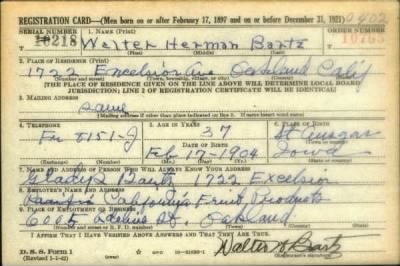 REGISTRATION CARD—(Men born on or after February 17, 1897 and on or before December 31, 1921)
SERIAL NUMBER 1. NAME (Print) ORDER NUMBER
218 Walter Herman Bartz
(First) (Middle) (Last)
2. PLACE OF RESIDENCE (Print)
1722 Excelsior Ave Oakland Calif
(Number and street) (Town, township, village, or city) (County) (State)
[THE PLACE OF RESIDENCE GIVEN ON THE LINE ABOVE WILL DETERMINE LOCAL BOARD
JURISDICTION; LINE 2 OF REGISTRATION CERTIFICATE WILL BE IDENTICAL]
3. MAILING ADDRESS
Same
[Mailing address if other than place indicated on line 2. If same insert word same]
4. TELEPHONE 5. AGE IN YEARS 6. PLACE OF BIRTH
37 St Ansgar
5151-J DATE OF BIRTH
Feb 17-1904 Iowa
(Exchange) (Number) (Mo.) (Day) (Yr.) (State or country)
7. NAME AND ADDRESS OF PERSON WHO WILL ALWAYS KNOW YOUR ADDRESS
Gladys Bartz 1722 Excelsior
8. EMPLOYER'S NAME AND ADDRESS
California Fruit Products
9. PLACE OF EMPLOYMENT OR BUSINESS
Adeline St. Oakland
(Number and street or R. F. D. number) (Town) (County) (State)
I AFFIRM THAT I HAVE VERIFIED ABOVE ANSWERS AND THAT THEY ARE TRUE.
D. S. S. Form 1
(Revised 1-1-42) (over) Walter H Bartz
(Registrant's signature)